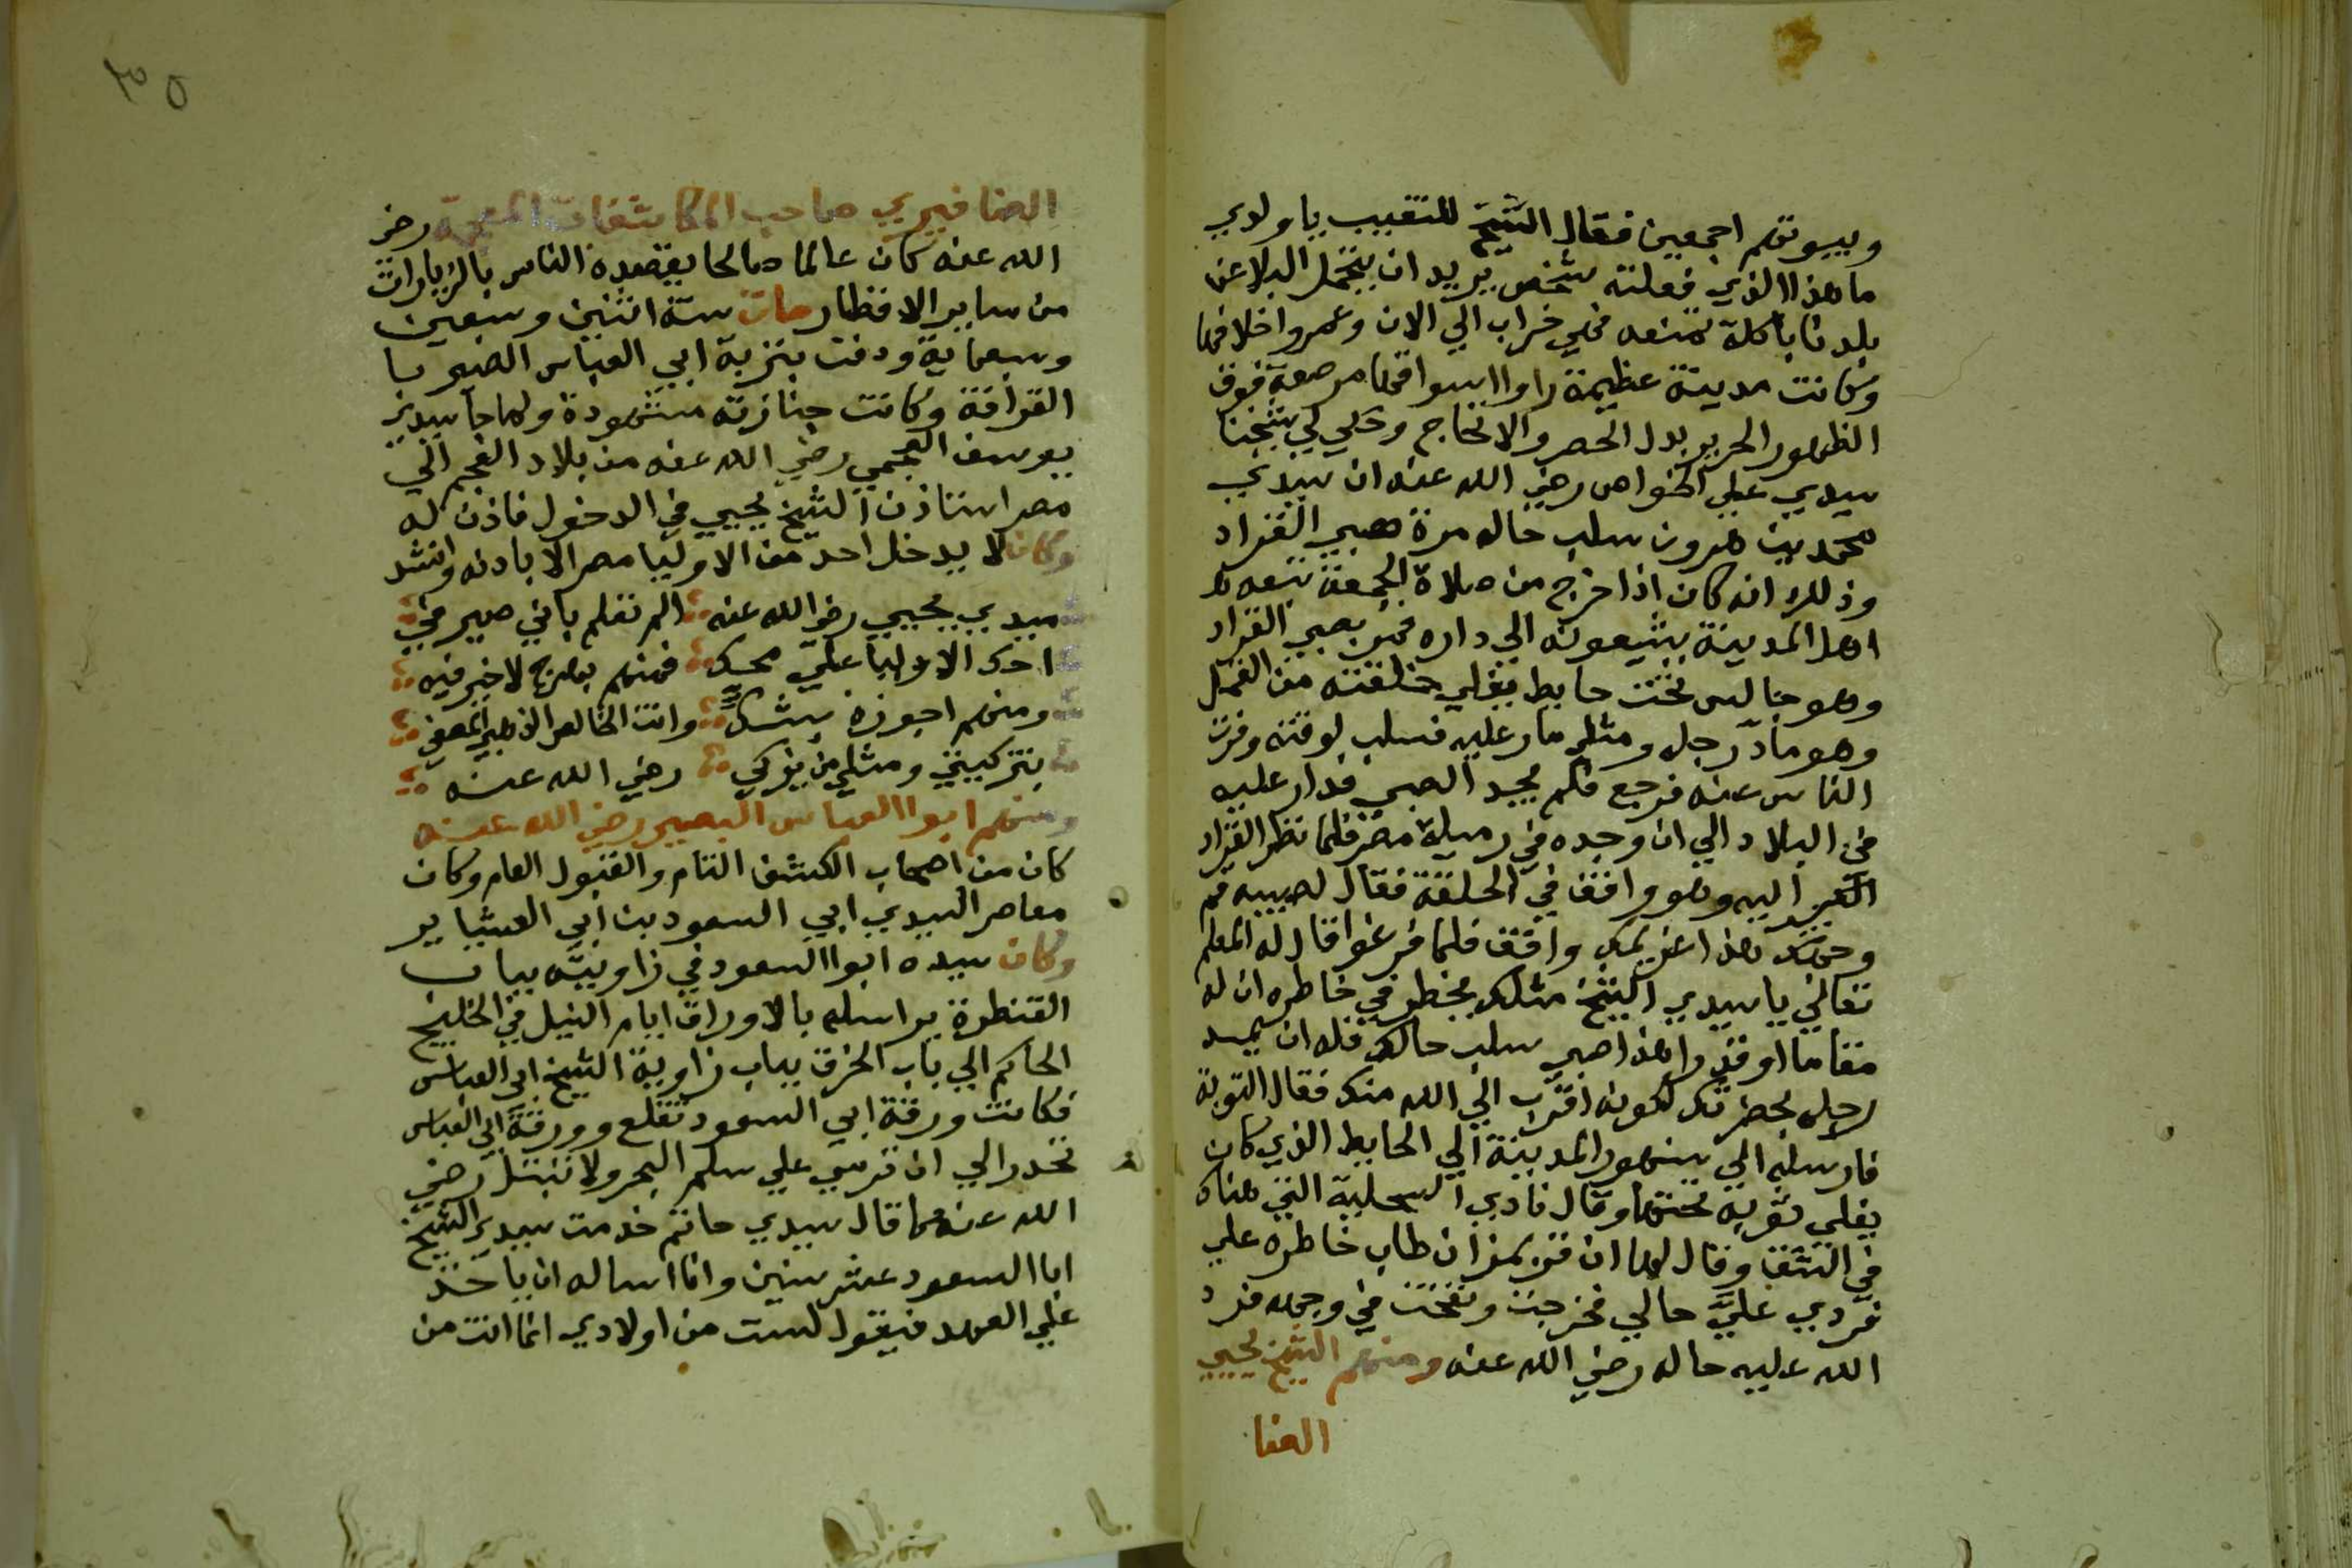 وبيوتهم اجمعين فقال الشيخ للنقيب ياولدي
ما هذا الذي فعلته شخص يريد ان يتحمل البلا عن
بلدنا باكلة تمنعه فهي خراب الي الان وعمروا خلافها
وكانت مدينة عظيمة راوا اسواقها مرصعة فوق
الظهور الحرير بدل الحصر والانخاخ وحكي لي شيخنا
سيدي علي الخواص رضي الله عنه ان سيدي
محمد بن هرون سلب حاله مرة صبي القراد
وذلك انه كان اذا خرج من صلاة الجمعة تبعه
اهل المدينة يشيعونه الي داره فمر بصبي القراد
وهو جالس تحت حايط يفلي خلقته من القمل
وهو ماد رجله ومثلي مار عليه فسلب لوقته وفرت
الناس عنه فرجع فلم يجد الصبي فدار عليه
في البلاد الي ان وجده في رميلة مصر فلما نظر القراد
اليه وهو واقف في الحلقة فقال لصبيه قم
وحق هذا غريمك واقف فلما فرغوا قال له المعلم
تعالي يا سيدي الشيخ مثلك يخطر في خاطره ان له
مقاما او قدرا هذا صبي سلب حالك فله ان يمد
رجله بحضرتك لكونه اقرب الي الله منك فقال التوبة
فارسله الي سنهور المدينة الي الحايط الذي كان
يفلي ثوبه تحتها وقال نادي السحلية التي هناك
في الشق وقال لها ان قزيمز ان طاب خاطره علي
فردي علي حالي فخرجت ونفخت في وجهه فرد
الله عليه حاله رضي الله عنه ومنهم الشيخ يحيي
الصنا
٣٥
الصنافيري صاحب المكاشفات رضي
الله عنه كان عالما صالحا يقصده الناس بالزيارات
من ساير الاقطار مات سنة اثنين وسبعين
وسبعماية ودفن بتربة ابي العباس البصير با
القرافة وكانت جنازته مشهودة ولما جا سيدي
يوسف العجمي رضي الله عنه من بلاد العجم الي
مصر استاذن الشيخ يحيي في الدخول فاذن له
وكان لا يدخل احد من الاوليا مصر الا باذنه وانشد
سيدي يحيي رضي الله عنه الم تعلم باني صيرفي
احك الاوليا علي محك فمنهم بهرج لا خير فيه
ومنهم اجوزه بشك وانت الخالص الذهب المصفي
بتزكيتي ومثلي من يزكي رضي الله عنه
ومنهم ابوا العباس البصير رضي الله عنه
كان من اصحاب الكشف التام والقبول العام وكان
معاصر السيدي ابي السعود بن ابي العشاير
وكان سيده ابوا السعود في زاويته بباب
القنطرة يراسله بالاوراق ايام النيل في الخليج
الحاكم الي باب الخرق بباب زاوية الشيخ ابي العباس
فكانت ورقة ابي السعود تقلع وورقة ابي العباس
تحدر الي ان ترسي علي سلم البحر ولا تبتل رضي
الله عنهما قال سيدي حاتم خدمت سيدي الشيخ
ابا السعود عشر سنين وانا اساله ان ياخذ
علي العهد فيقول لست من اولادي انما انت من